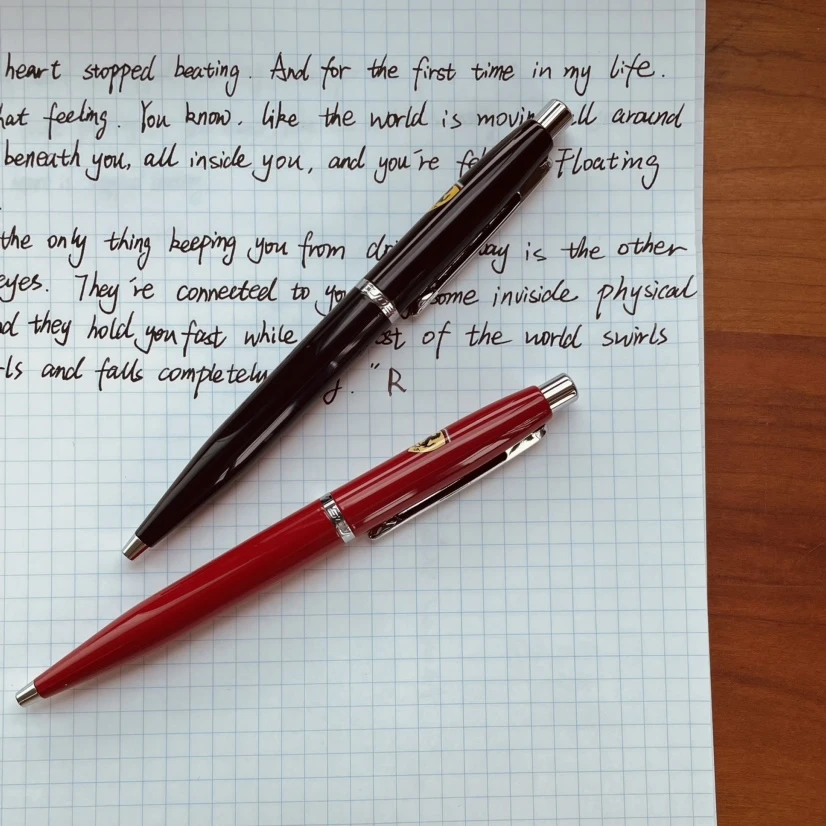 heart stopped beating. And for the first time in my life.
feeling. You know. like the world is around
beneath you, all inside you, and you're Floating
the only thing keeping you from is the other
eyes. They're connected to inviside physical
they hold you fast while of the world swirls
and falls completely ." R